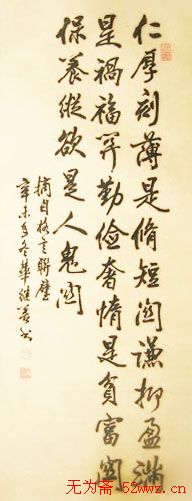 仁厚刻薄是脩短関謙抑盈滿
是禍福関勤儉奢惰是貧富関
保養縱欲是人鬼関
摘自格言聯璧
辛未年冬華继善书
无为斋 52wwz.cn